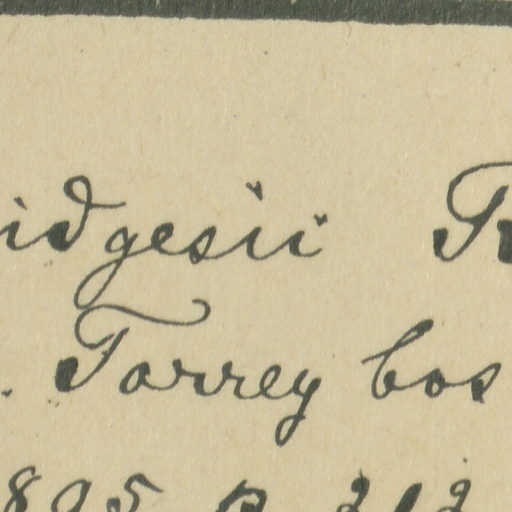 idgesii
. Torrey bos
1895 p. 212